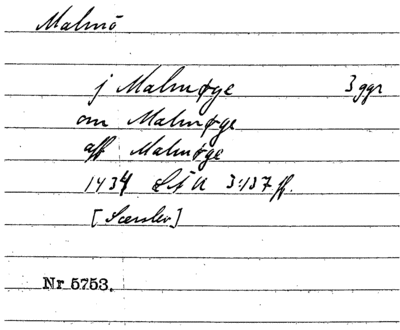 Malmö
j Malmøge 3 ggr
om Malmøge
aff Malmøge
1434 3:137 ff.
Nr 5753.